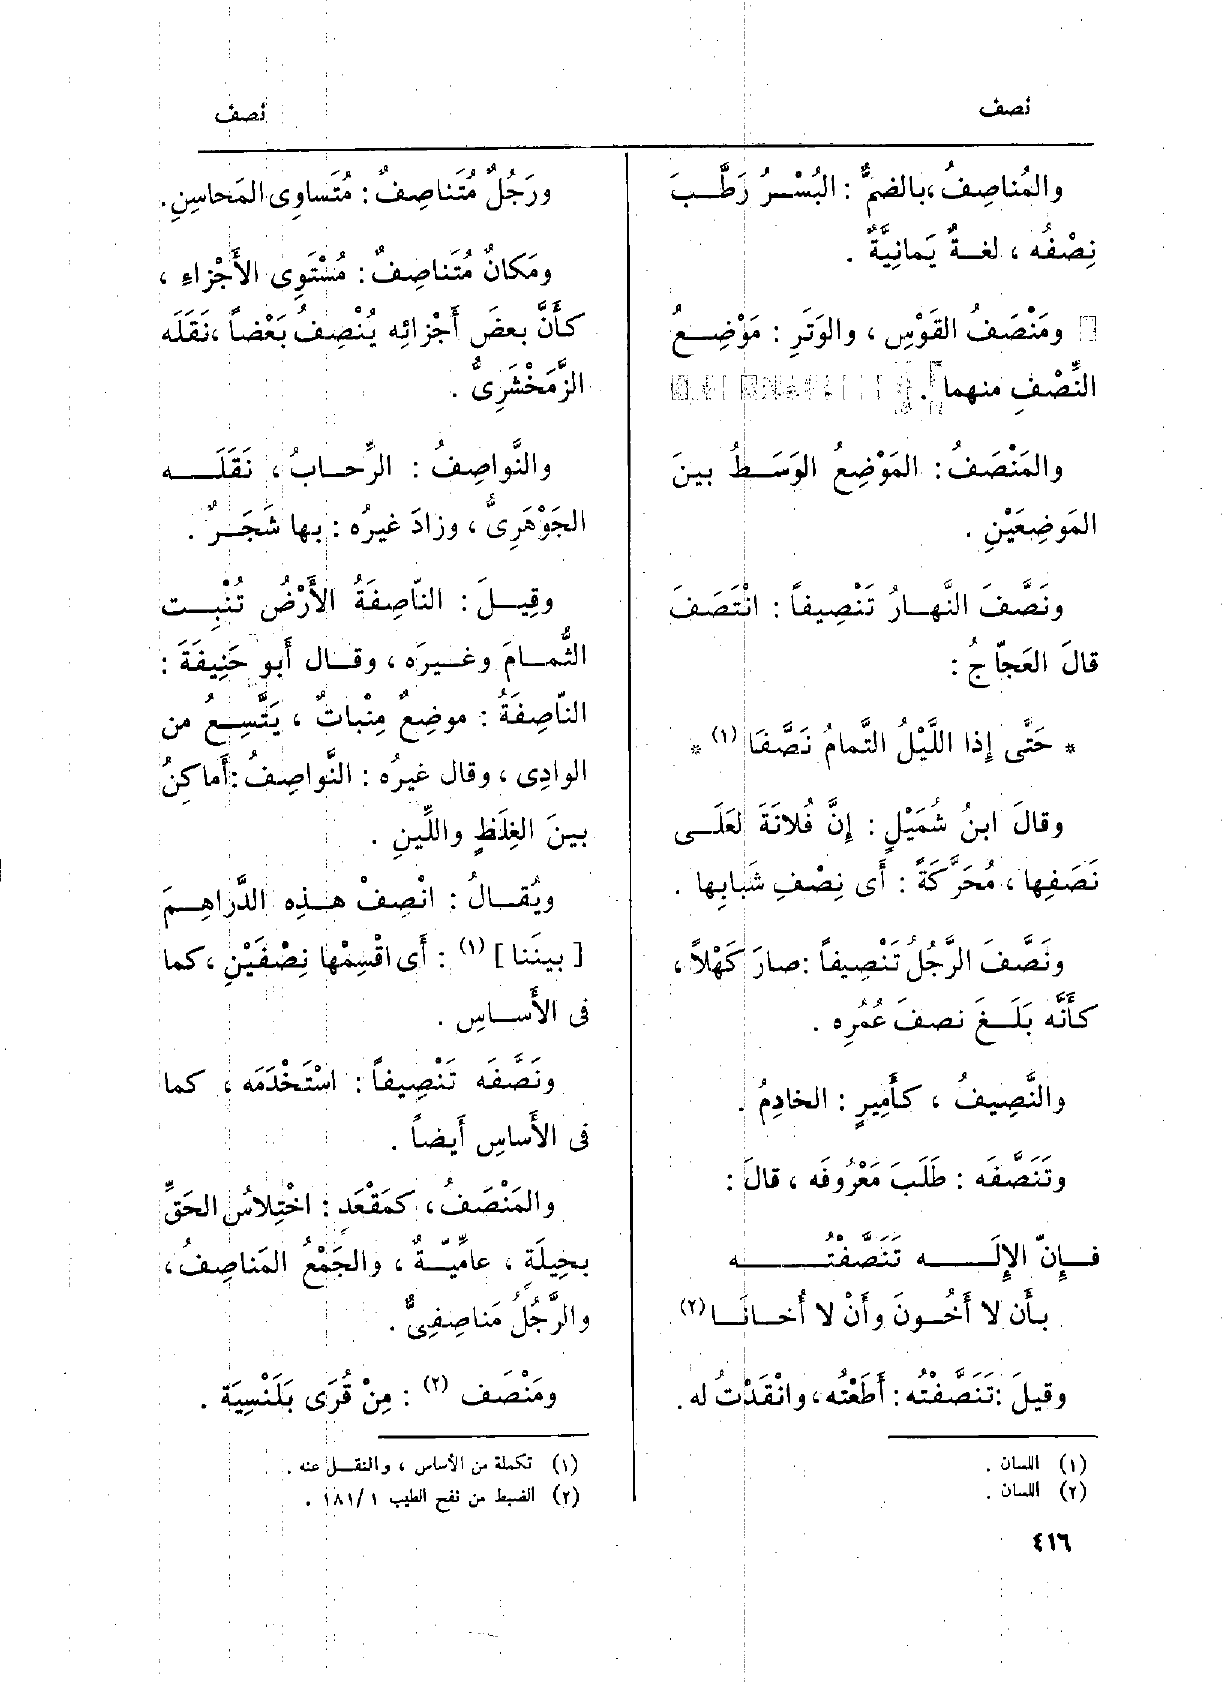 نصف
نصف
والمُناصِفُ ، بالضمِّ : البُسْرُ رَطَّبَ
نِصْفُه ، لغةٌ يَمانِيَّةٌ .
ومَنْصَفُ القَوْسِ ، والوَتَرِ : مَوْضِعُ
النِّصْفِ منهما .
والمَنْصَفُ : المَوْضِعُ الوَسَطُ بينَ
المَوضِعَيْنِ .
ونَصَّفَ النَّهارُ تَنْصِيفاً : انْتَصَفَ
قالَ العَجّاجُ :
* حَتَّى إِذا اللَّيْلُ التَّمامُ نَصَّفَا (١) *
وقالَ ابنُ شُمَيْلٍ : إِنَّ فُلانَةَ لعَلَى
نَصَفِها ، مُحَرَّكَةً : أَى نِصْفِ شَبابِها .
ونَصَّفَ الرَّجُلُ تَنْصِيفاً : صارَ كَهْلاً ،
كأَنَّه بَلَغَ نصفَ عُمُرِه .
والنَّصِيفُ ، كأَمِيرٍ : الخادِمُ .
وتَنَصَّفَه : طَلَبَ مَعْرُوفَه ، قالَ :
فإِنّ الإِلَه تَنَصَّفْتُه
بأَن لا أَخُونَ وأَنْ لا أُخانَا (٢)
وقيلَ : تَنَصَّفْتُه : أَطَعْتُه ، وانْقَدْتُ له .
(١) اللسان .
(٢) اللسان .
٤١٦
ورَجُلٌ مُتَناصِفٌ : مُتَساوِى المَحاسِنِ .
ومَكانٌ مُتَناصِفٌ : مُسْتَوِى الأَجْزاءِ ،
كأَنَّ بعضَ أَجْزائِه يُنْصِفُ بَعْضاً ، نَقَلَه
الزَّمَخْشَرِىُّ .
والنَّواصِفُ : الرِّحابُ ، نَقَلَه
الجَوْهَرِىُّ ، وزادَ غيرُه : بها شَجَرٌ .
وقِيلَ : النّاصِفَةُ الأَرْضُ تُنْبِت
الثُّمامَ وغيرَه ، وقال أَبو حَنِيفَةَ :
النّاصِفَةُ : موضِعٌ مِنْباتٌ ، يَتَّسِعُ من
الوادِى ، وقال غيرُه : النَّواصِفُ : أَماكِنُ
بينَ الغِلَظِ واللِّينِ .
ويُقالُ : انْصِفْ هذِه الدَّراهِمَ
[ بينَنا ] (١) : أَى اقْسِمْها نِصْفَيْنِ ، كما
فى الأَساسِ .
ونَصَّفَه تَنْصِيفاً : اسْتَخْدَمَه ، كما
فى الأَساسِ أَيضاً .
والمَنْصَفُ ، كمَقْعَدٍ : اخْتِلاسُ الحَقِّ
بحِيلَةٍ ، عامِّيَّةٌ ، والجَمْعُ المَناصِفُ ،
والرَّجُلُ مَناصِفِىٌّ .
ومَنْصَف (٢) : مِنْ قُرَى بَلَنْسِيَة .
(١) تكملة من الأساس ، والنقل عنه .
(٢) الضبط من نفح الطيب ١ /١٨١ .